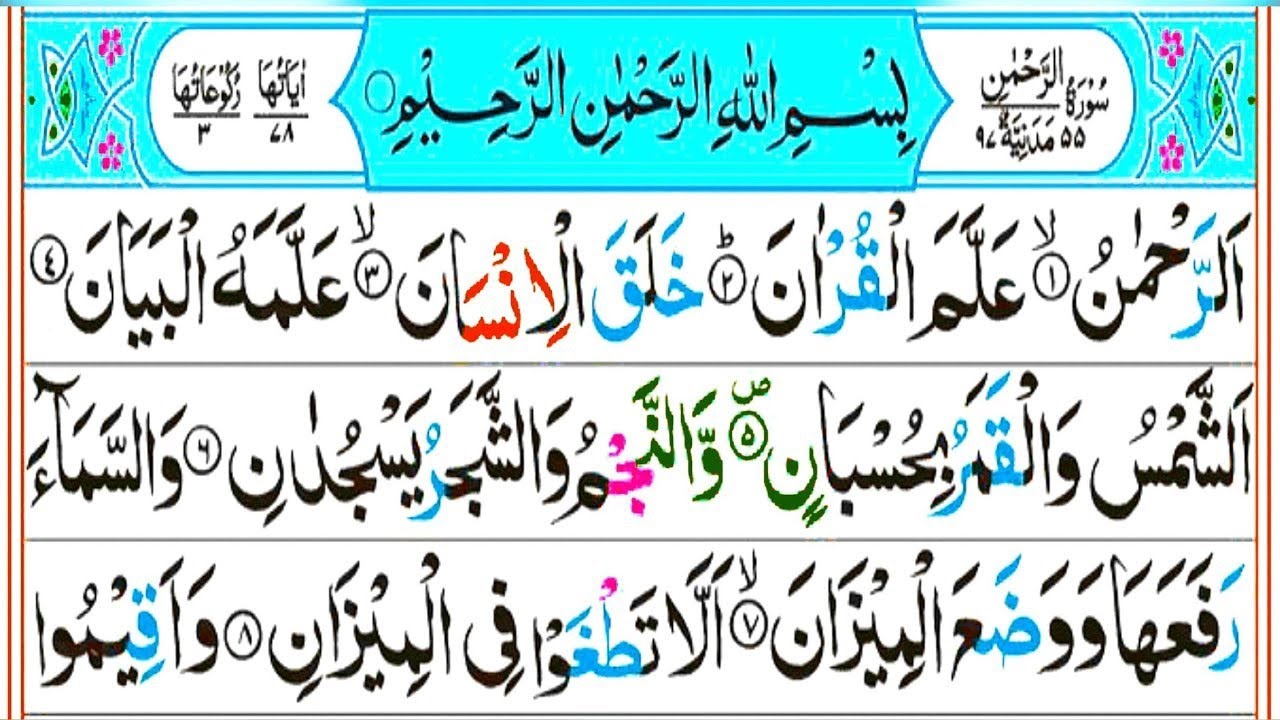 سُوْرَةُ الرَّحْمٰنِ
۵۵ مَدَنِيَّةٌ ۹۷
بِسْمِ اللّٰهِ الرَّحْمٰنِ الرَّحِيْمِ
اٰيَاتُهَا ۷۸
رُكُوْعَاتُهَا ۳
اَلرَّحْمٰنُ ۙ‏۱ عَلَّمَ الْقُرْاٰنَ ؕ‏۲ خَلَقَ الْاِنْسَانَ ۙ‏۳ عَلَّمَهُ الْبَيَانَ ۴
اَلشَّمْسُ وَالْقَمَرُ بِحُسْبَانٍ ۪‏۵ وَّالنَّجْمُ وَالشَّجَرُ يَسْجُدٰنِ ۶ وَالسَّمَآءَ
رَفَعَهَا وَوَضَعَ الْمِيْزَانَ ۙ‏۷ اَلَّا تَطْغَوْا فِى الْمِيْزَانِ ۸ وَاَقِيْمُوا